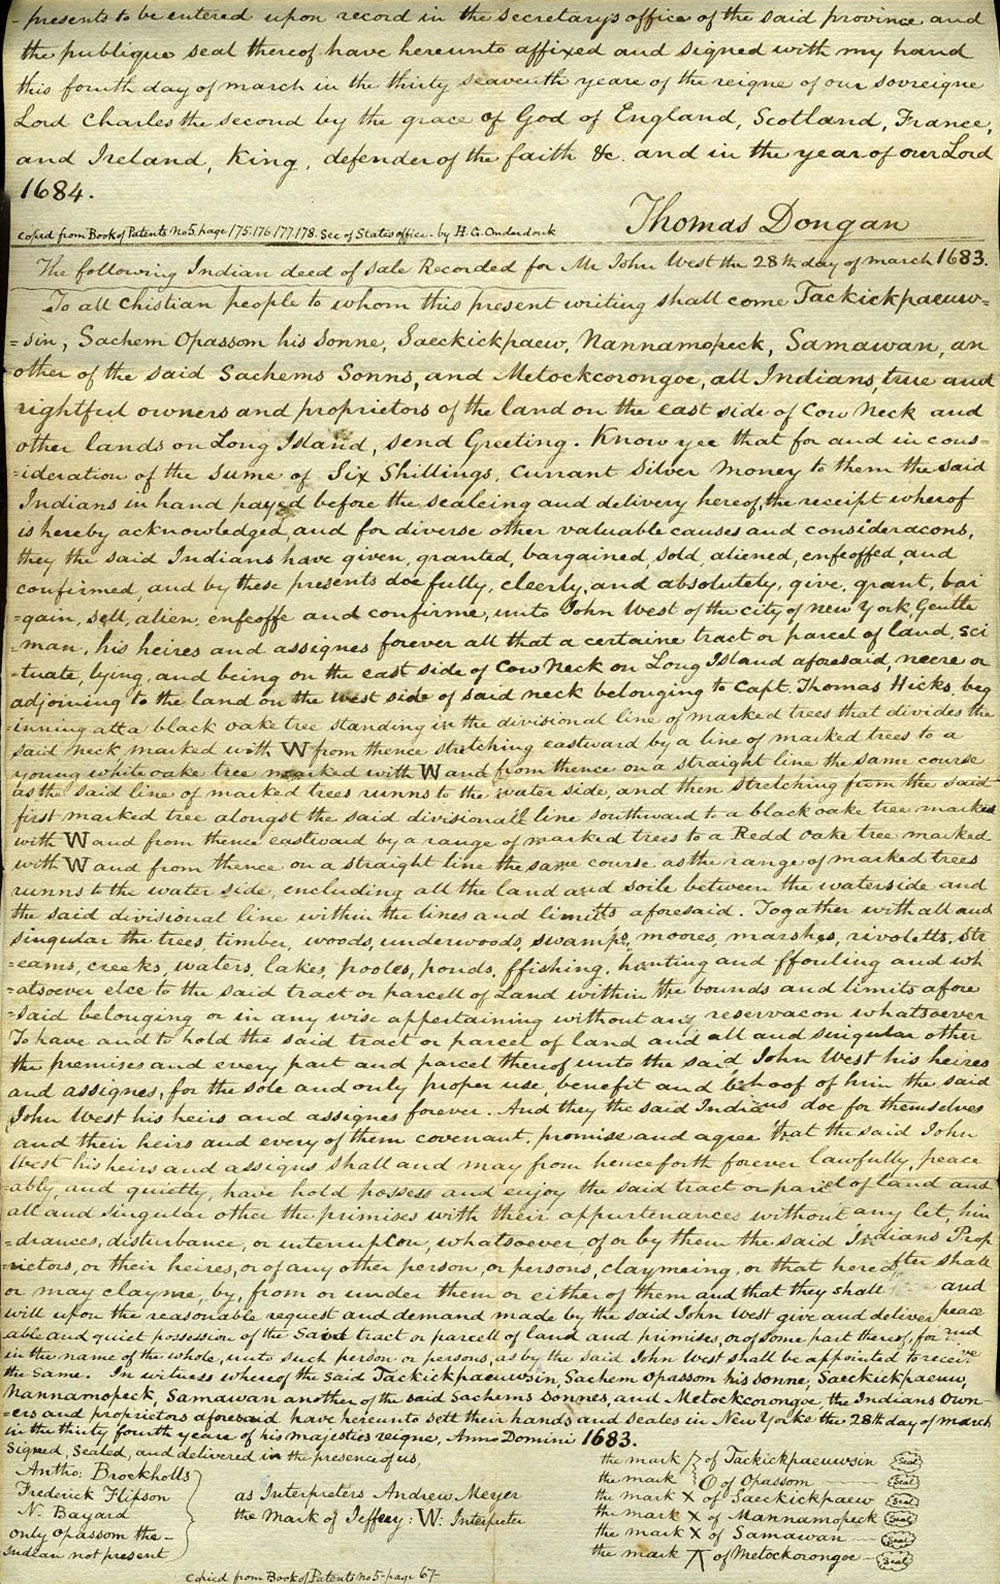 - presents to be entered upon record in the secretarys office of the said province and
the publique seal thereof have hereunto affixed and signed with my hand
this fourth day of march in the thirty seaventh yeare of the reigne of our sovreigne
Lord Charles the second by the grace of God of England, Scotland, France,
and Ireland, King, defender of the faith &c. and in the year of our Lord
1684.
Thomas Dongan
Copied from Book of Patents No 5 page 175.176.177.178. Sec of States office - by H. G. Onderdonk
The following Indian deed of sale Recorded for Mr John West the 28th day of march 1683.
To all Chistian people to whom this present writing shall come Tackickpaeuw=
=sin, Sachem Opassom his Sonne, Saeckickpaew, Nannamopeck, Samawan, an
other of the said Sachems Sonns, and Metockcorongoe, all Indians, true and
rightful owners and proprietors of the land on the east side of Cow Neck and
other lands on Long Island, send Greeting. Know yee that for and in cons=
=ideration of the Sume of Six Shillings, Currant Silver Money to them the said
Indians in hand payed before the sealeing and delivery hereof, the receipt wherof
is hereby acknowledged, and for diverse other valuable causes and consideracons,
they the said Indians have given, granted, bargained, sold, aliened, enfeoffed, and
confirmed, and by these presents doe fully, cleerly, and absolutely, give, grant, bar
=gain, sell, alien, enfeoffe and confirme, unto John West of the city of New York, Gentle
=man, his heires and assignes forever all that a certaine tract or parcel of land, sci
=tuate, lying, and being on the east side of Cow Neck on Long Island aforesaid, neere or
adjoining to the land on the west side of said neck belonging to Capt. Thomas Hicks, beg
=inning att a black oake tree standing in the divisional line of marked trees that divides the
said Neck marked with W from thence stretching eastward by a line of marked trees to a
young white oake tree marked with W and from thence on a straight line the same course
as the said line of marked trees runns to the water side, and then stretching from the said
first marked tree alongst the said divisionall line southward to a black oake tree marked
with W and from thence eastward by a range of marked trees to a Redd oake tree marked
with W and from thence on a straight line the same course as the range of marked trees
runns to the water side, encluding all the land and soile between the waterside and
the said divisional line within the lines and limitts aforesaid. Together with all and
singular the trees, timber, woods, underwoods, swamps, moores, marshes, rivoletts, Str
=eams, creeks, waters, lakes, pooles, ponds, ffishing, hunting and ffouling and wh
=atsoever elce to the said tract or parcell of Land within the bounds and limits afore
=said belonging or in any wise appertaining without any reservacon whatsoever
To have and to hold the said tract or parcel of land and all and singular other
the premises and every part and parcel thereof unto the said John West his heires
and assignes, for the sole and only proper use, benefit and behoof of him the said
John West his heirs and assignes forever. And they the said Indians doe for themselves
and their heirs and every of them covenant, promise and agree that the said John
West his heirs and assigns shall and may from henceforth forever lawfully, peace
=ably, and quietly, have hold possess and enjoy the said tract or parcel of land and
all and singular other the primises with their appurtenances without any let, hin
=drances, disturbance, or interrupcon, whatsoever, of or by them the said Indians Prop
=rietors, or their heires, or of any other person, or persons, claymeing, or that hereafter shall
or may clayme, by, from or under them or either of them and that they shall and
will upon the reasonable request and demand made by the said John West give and deliver peace
able and quiet possession of the said tract or parcell of land and primises, or of some part thereof, for and
in the name of the whole, unto such person or persons, as by the said John West shall be appointed to receive
the same. In witness whereof the said Tackickpaeuwsin, Sachem Opassom his Sonne, Saeckickpaeuw,
Nannamopeck, Samawan another of the said Sachems Sonnes, and Metockcorongoe, the Indians Own=
=ers and proprietors aforesaid have hereunto sett their hands and seales in New Yorke the 28th day of march
in the thirty fourth yeare of his majesties reigne, Anno Domini 1683.
Signed, Sealed, and delivered in the presence of us,
Antho: Brockholls
Frederick Flipson
N. Bayard
only Opassom the -
Indian not present
as Interpreters Andrew Meyer
the Mark of Jeffery: W: Interpreter
the mark of Tackickpaeuwsin Seal
the mark of Opassom Seal
the mark X of Saeckickpaew Seal
the mark X of Mannamopeck Seal
the mark X of Samawan Seal
the mark of Metockorongoe Seal
Copied from Book of Patents No 5 - page 67